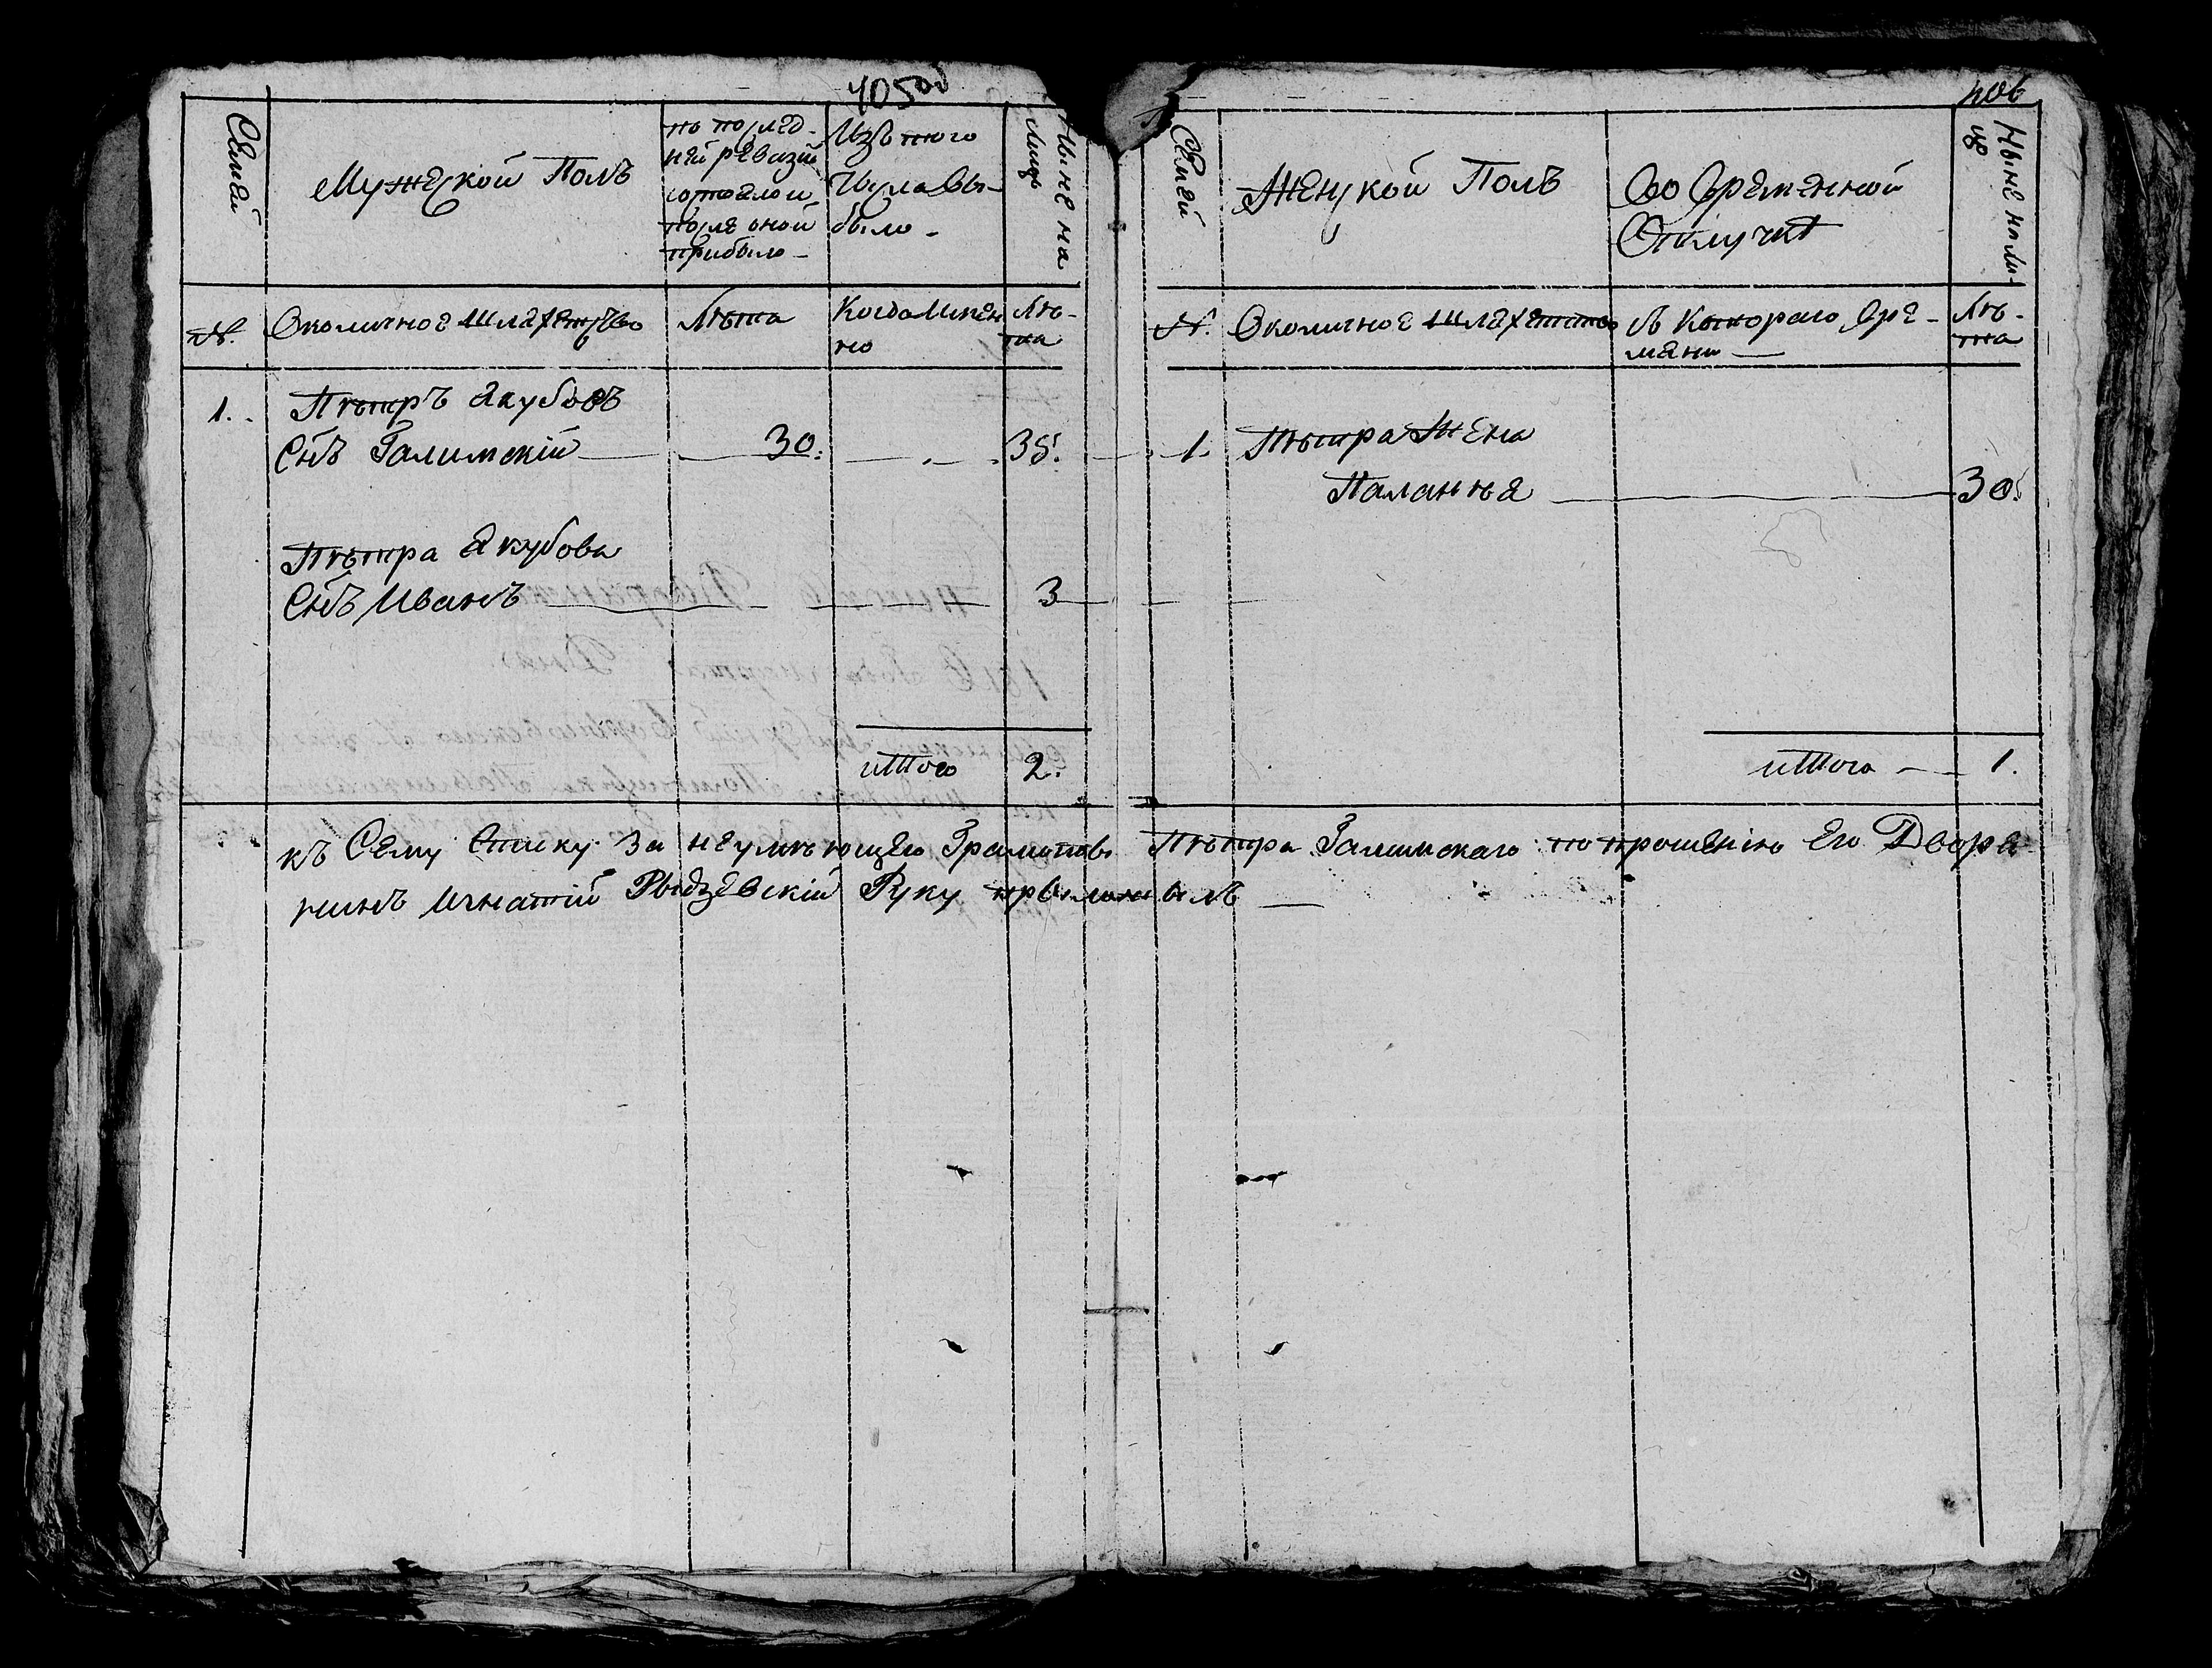 405об
406
Семей
Мужеской Полъ
по послед-
ней ревизіи
состояло и
после оной
прибыло
Изъ того
числа вы-
было
Ныне на
лицо
№.
Околичное шляхетство
Лѣта
Когда имен
но
Лѣ-
та
1.
Пѣтръ Якубовъ
Снъ Галимскій 30. 35.
Пѣтра Якубова
Снъ Иванъ 3
итого 2.
Семей
Женской Полъ
Во временной
Отлучке
Ныне на ли-
цо
№.
Околичное шляхетство
съ котораго вре-
мени
Лѣ-
та
1. Пѣтра Жена
Паланея 30.
итого 1.
къ Сему Списку за неумѣющего Грамоты Пѣтра Галимскаго по прошенію Его Дворя
нинъ Игнатій Рыдзевскій Руку приложилъ